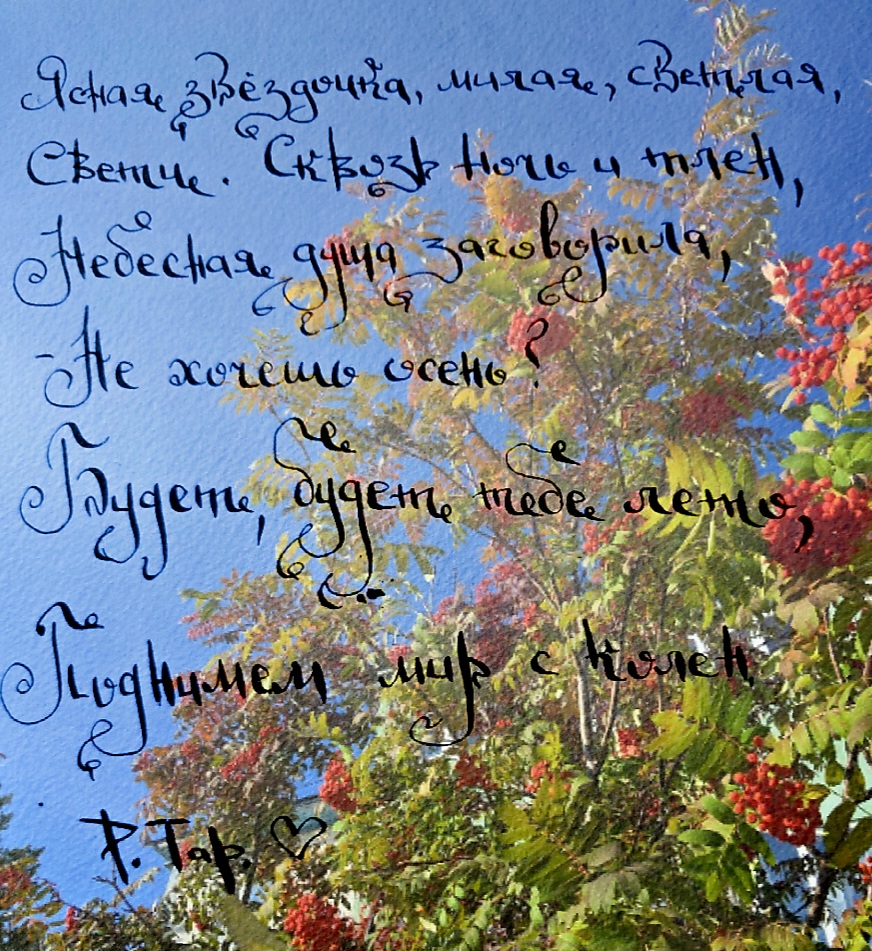 Ясная звёздочка, милая, светлая,
Свети. Сквозь ночь и тлен,
Небесная душа заговорила,
-Не хочешь осень?
Будет, будет тебе лето,
Поднимем мир с колен
Р. Тар. ♡